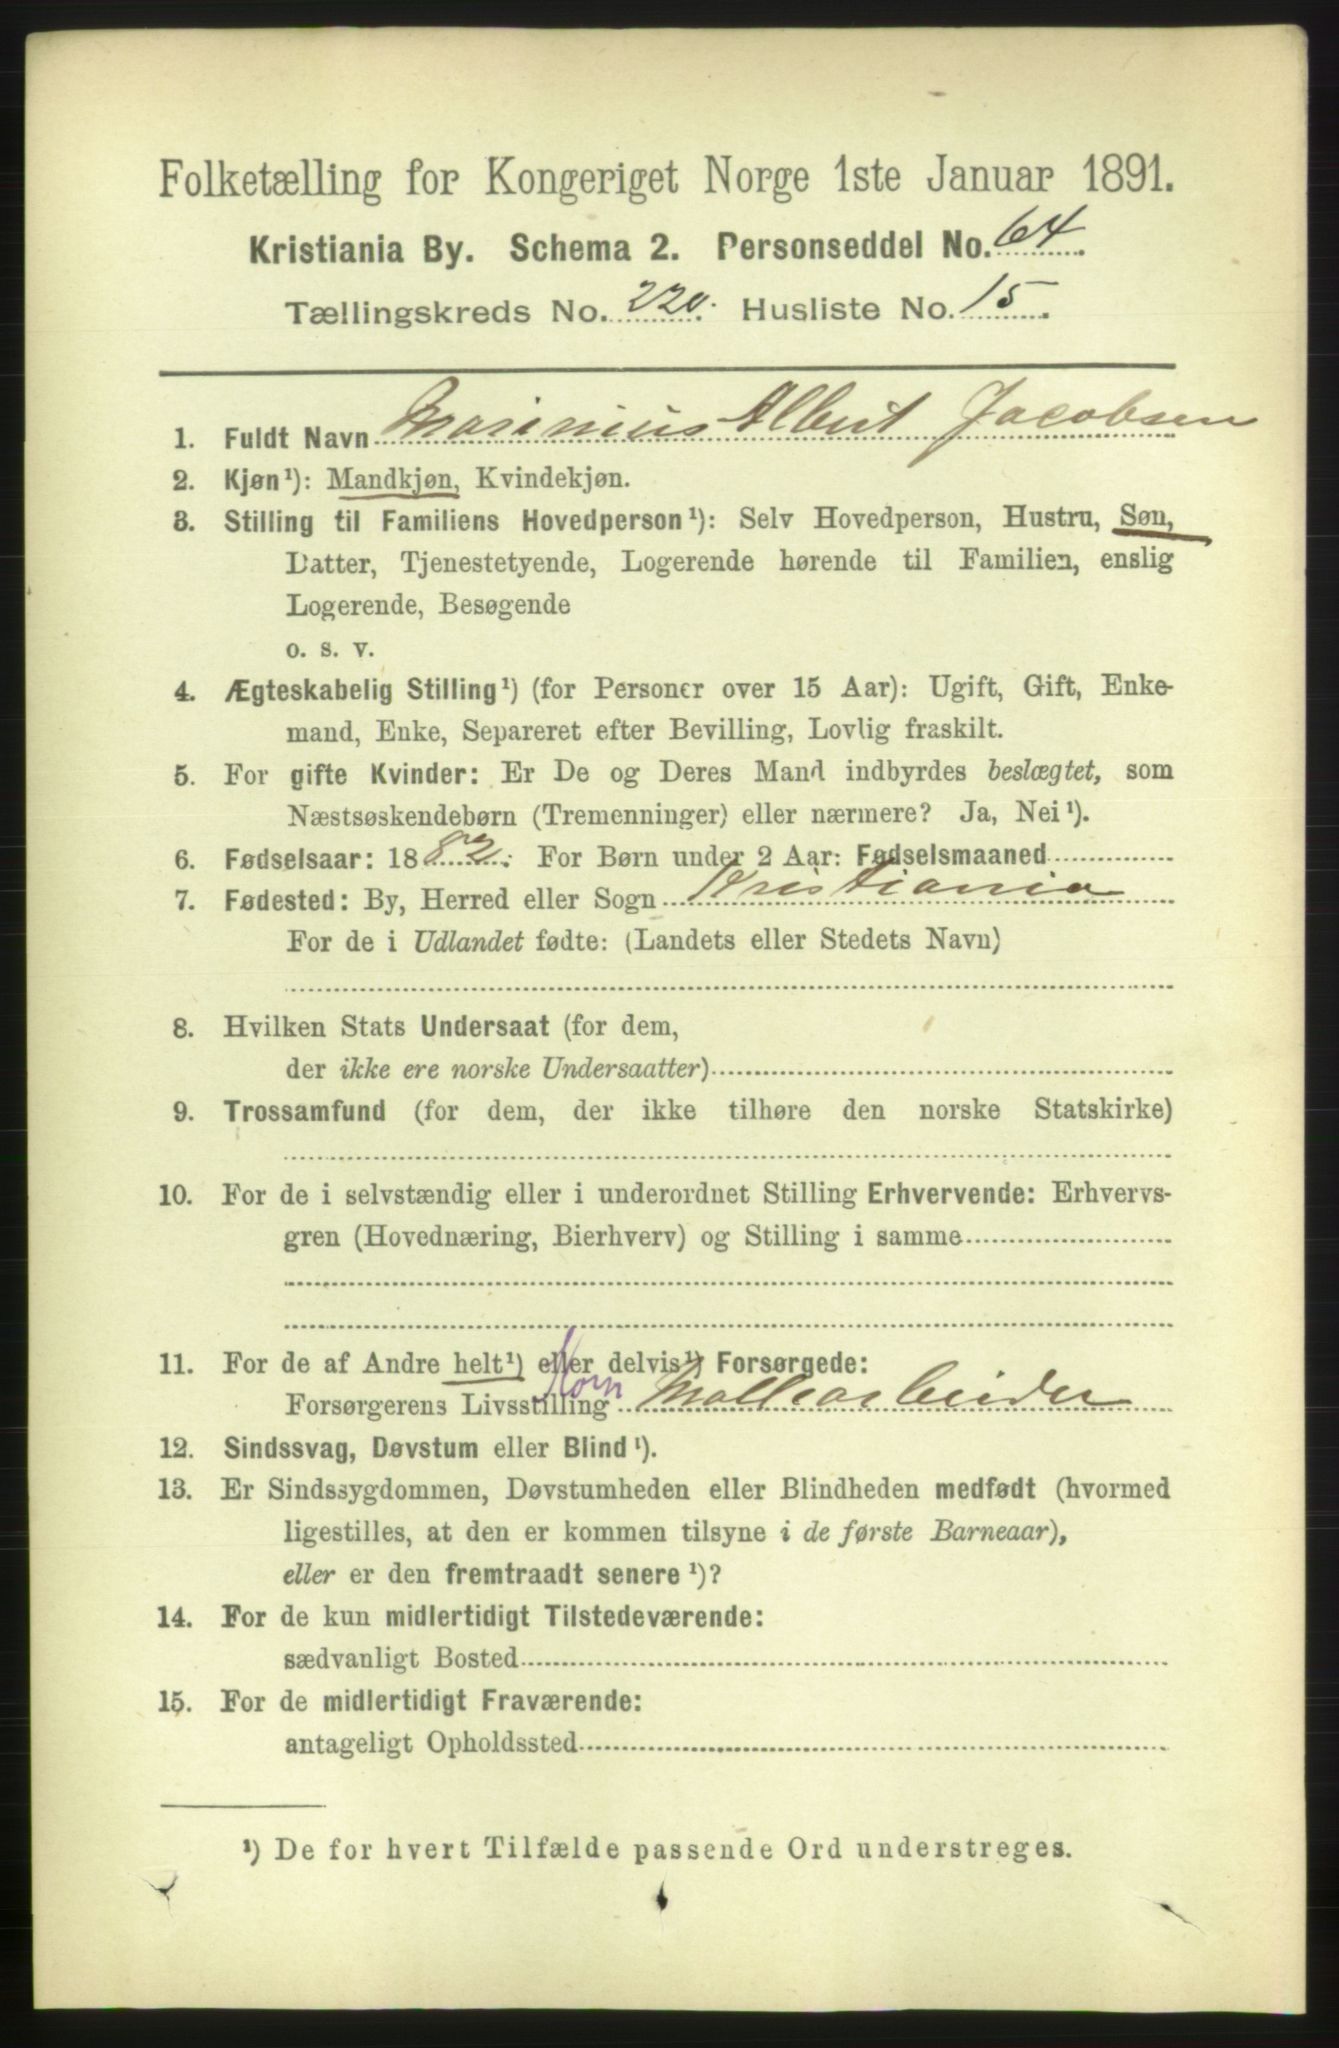 Folketælling for Kongeriget Norge 1ste Januar 1891.
Kristiania By. Schema 2. Personseddel No. 64
Tællingskreds No. 220. Husliste No. 15.
1. Fuldt Navn Marinius Albert Jacobsen
2. Kjøn¹): Mandkjøn, Kvindekjøn.
3. Stilling til Familiens Hovedperson¹): Selv Hovedperson, Hustru, Søn,
Datter, Tjenestetyende, Logerende hørende til Familien, enslig
Logerende, Besøgende
o. s. v.
4. Ægteskabelig Stilling¹) (for Personer over 15 Aar): Ugift, Gift, Enke-
mand, Enke, Separeret efter Bevilling, Lovlig fraskilt.
5. For gifte Kvinder: Er De og Deres Mand indbyrdes beslægtet, som
Næstsøskendebørn (Tremenninger) eller nærmere? Ja, Nei¹).
6. Fødselsaar: 1882. For Børn under 2 Aar: Fødselsmaaned
7. Fødested: By, Herred eller Sogn Kristiania
For de i Udlandet fødte: (Landets eller Stedets Navn)
8. Hvilken Stats Undersaat (for dem,
der ikke ere norske Undersaatter)
9. Trossamfund (for dem, der ikke tilhøre den norske Statskirke)
10. For de i selvstændig eller i underordnet Stilling Erhvervende: Erhvervs-
gren (Hovednæring, Bierhverv) og Stilling i samme
11. For de af Andre helt¹) eller delvis¹) Forsørgede:
Forsørgerens Livsstilling
12. Sindssvag, Døvstum eller Blind¹).
13. Er Sindssygdommen, Døvstumheden eller Blindheden medfødt (hvormed
ligestilles, at den er kommen tilsyne i de første Barneaar),
eller er den fremtraadt senere¹)?
14. For de kun midlertidigt Tilstedeværende:
sædvanligt Bosted
15. For de midlertidigt Fraværende:
antageligt Opholdssted
¹) De for hvert Tilfælde passende Ord understreges.